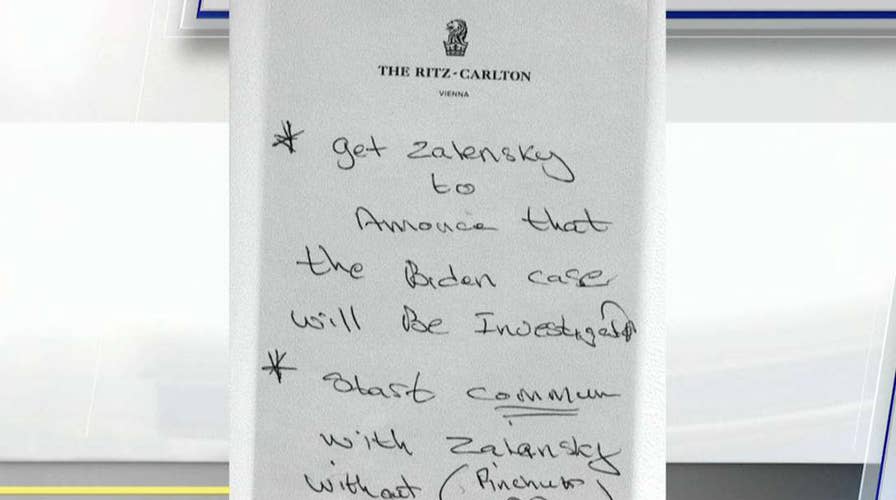 THE RITZ-CARLTON
VIENNA
* get Zalensky
to
Annouce that
the Biden case
will Be Investigated
* Start commun
with Zalansky
without (